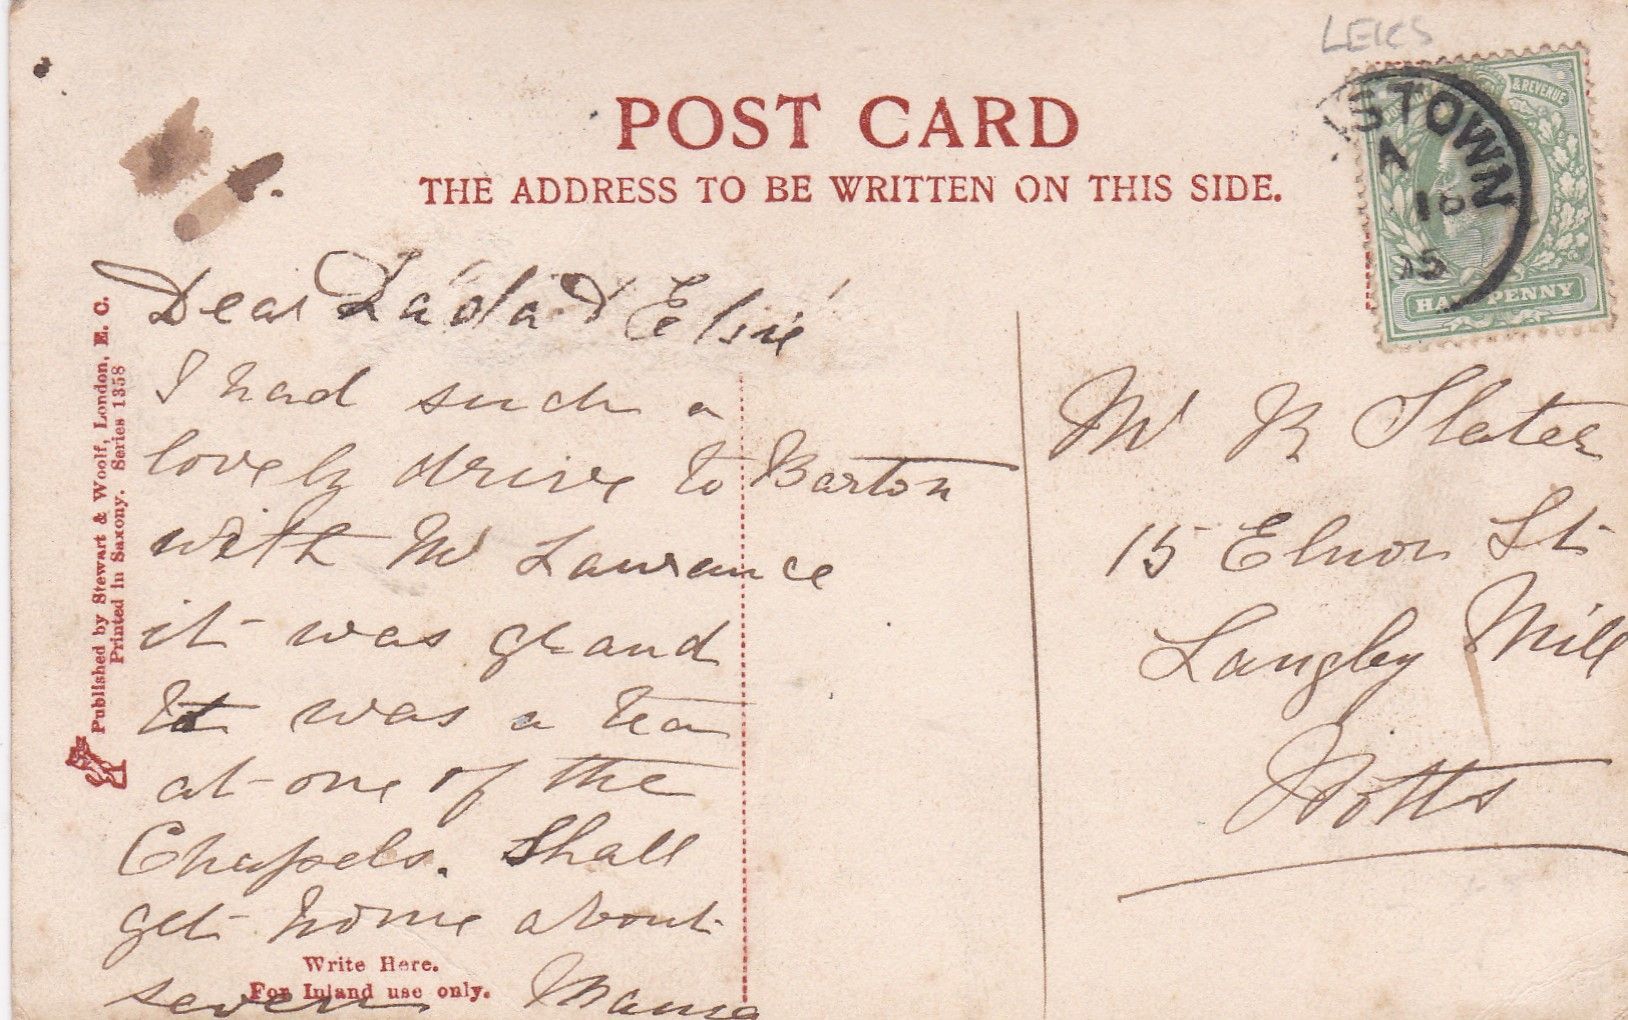 LEICS
POST CARD
THE ADDRESS TO BE WRITTEN ON THIS SIDE.
STOWN
A
18
05
& REVENUE
HALFPENNY
Published by Stewart & Woolf, London, E. C.
Printed in Saxony. Series 1358
Dear Dada & Elsie
I had such a
lovely drive to Barton
with Mr Lawrance
it was grand
It was a tea
at one of the
Chapels. Shall
get home about
seven Mama
Write Here.
For Inland use only.
Mr R Slater
15 Elnor St
Langley Mill
Notts